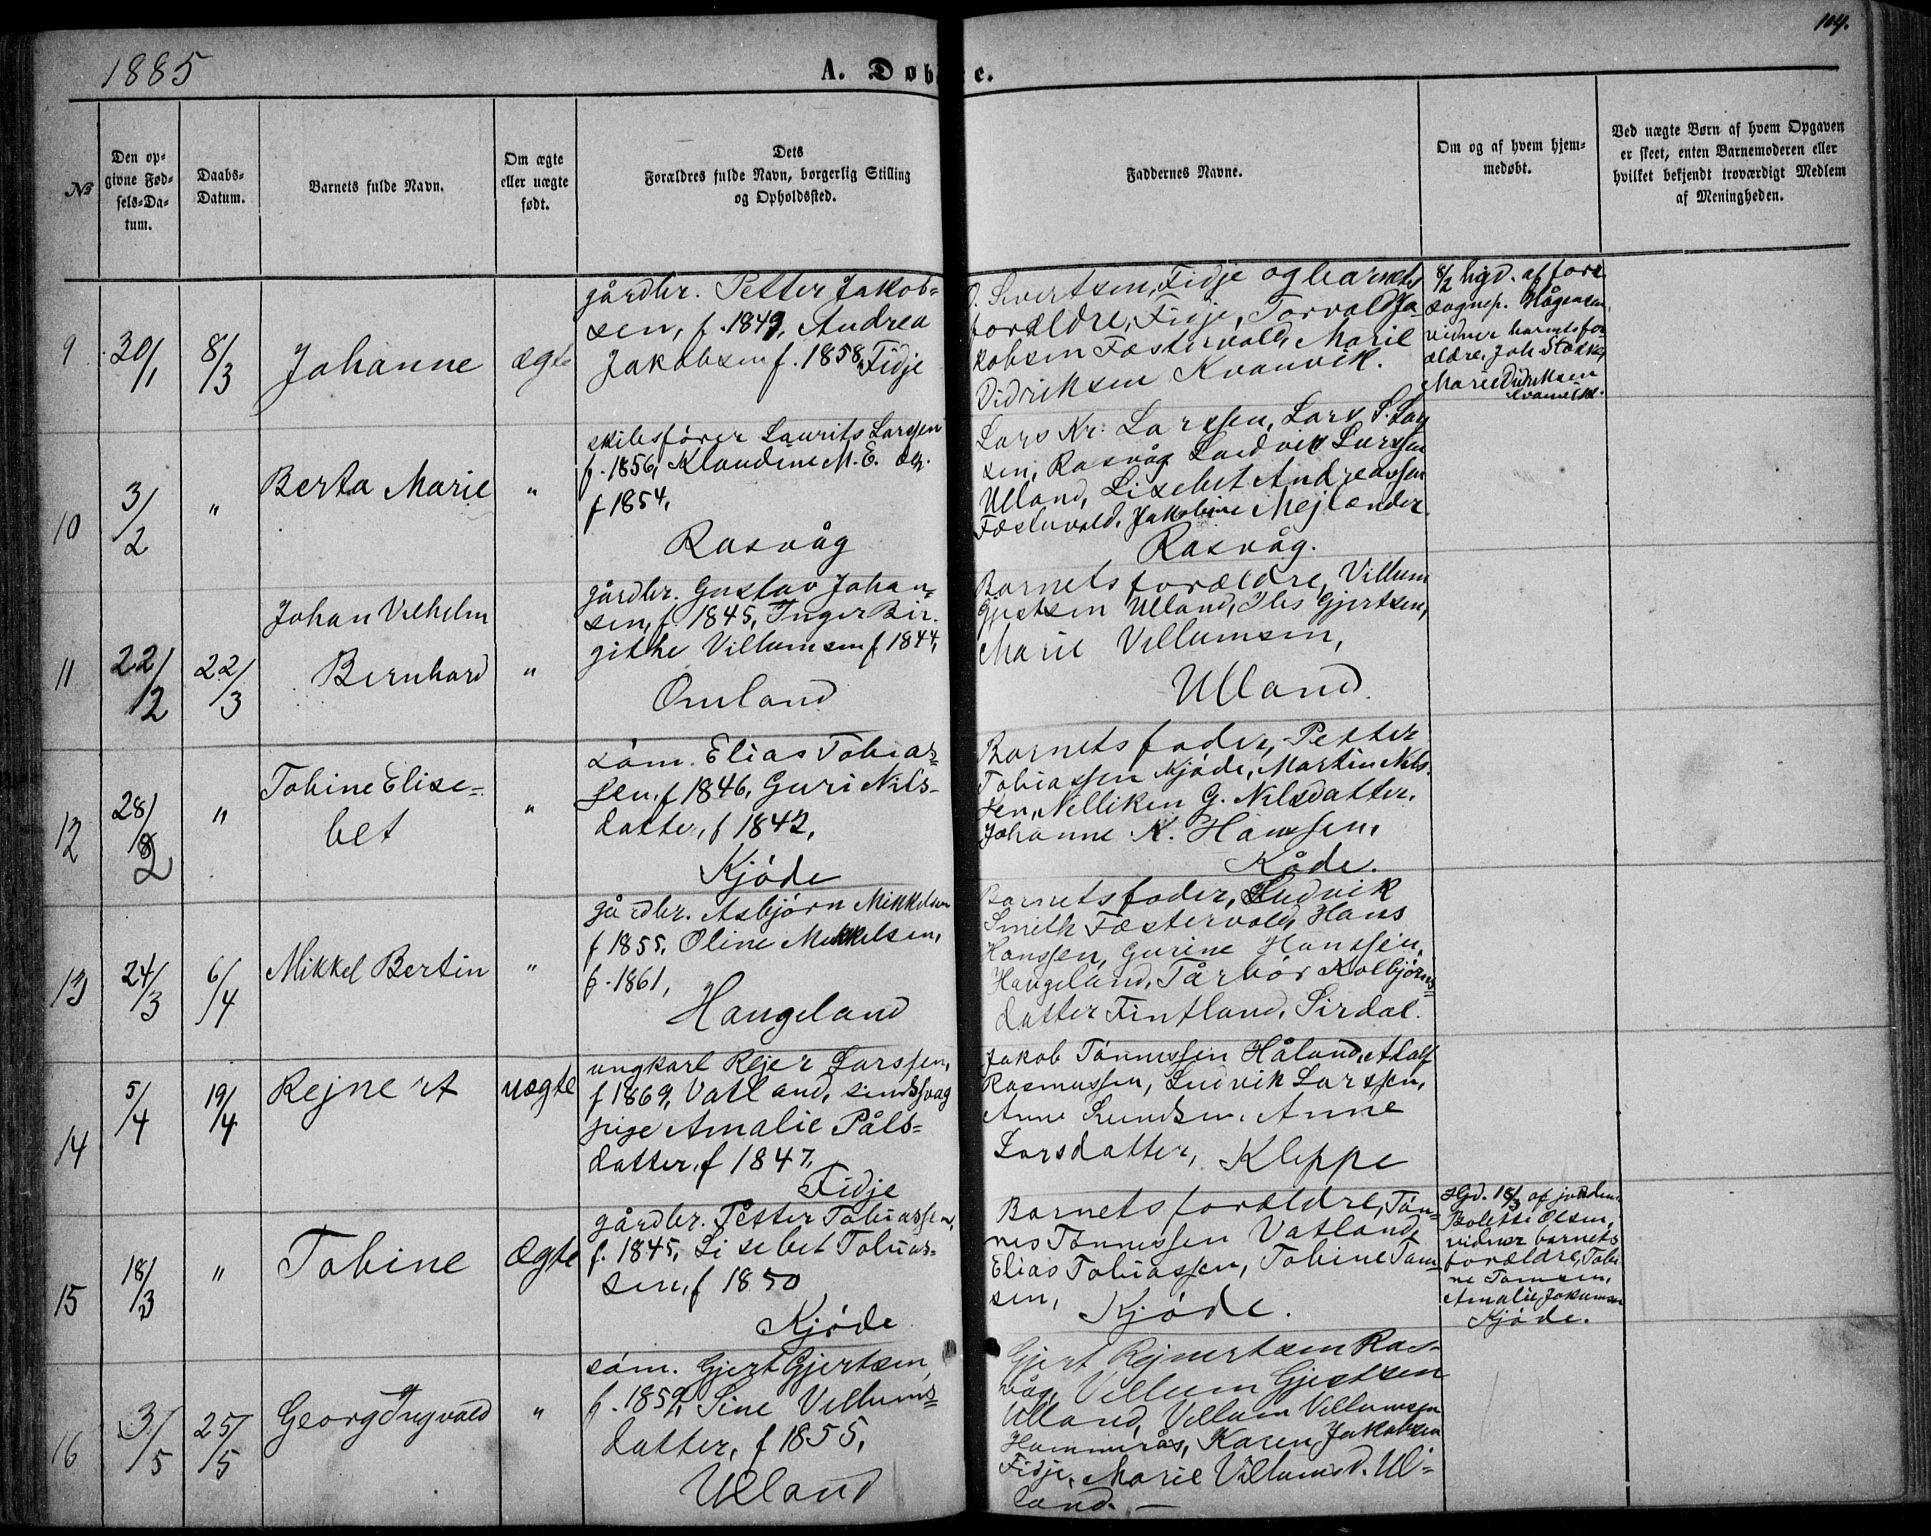 1885
A. Døbte.
104.
№
Den op-
givne Fød-
sels-Da-
tum.
Daabs-
Datum.
Barnets fulde Navn.
Om ægte
eller uægte
født.
Dets
Forældres fulde Navn, borgerlig Stilling
og Opholdssted.
Faddernes Navne.
Om og af hvem hjem-
medøbt.
Ved uægte Børn af hvem Opgaven
er skeet, enten Barnemoderen eller
hvilket bekjendt troværdigt Medlem
af Meningheden.
9
30/1
8/3
Johanne
ægte
gårdbr. Petter Jakob-
sen, f. 1849, Andrea
Jakobsen f. 1858, Fidje
Sivertsen, Fidje og barnets
forældre, Fidje, Torvald Ja
kobsen Fæstervold, Marie
Didriksen Kvanvik.
8/2 hjd. af fore
sognep. Hågensen
vidner barnets for
ældre, Joh Stokke,
Marie Didriksen
Kvanvik.
10
3/2
"
Berta Marie
"
skibsfører Laurits Larssen
f. 1856, Klaudine M. E. æg.
f 1854,
Rasvåg
Lars Kr. Larssen, Lars S. Lar
sen, Rasvåg Ludvik Larssen
Ulland, Lisebet Andreassen
Fæstervold, Jakobine Mejlænder
Rasvåg.
11
22/2
22/3
Johan Vilhelm
Bernhard
"
gårdbr. Gustav Johan-
sen, f. 1845, Inger Bir-
githe Villumsen f 1844,
Omland
Barnets forældre, Villum
Gjertsen Ulland, Ils Gjertsen,
Marie Villumsen,
Ulland.
12
28/2
"
Tobine Elise-
bet
"
søm. Elias Tobias-
sen, f 1846, Guri Nils-
datter, f 1842,
Kjøde
Barnets fader, Petter
Tobiassen Kjøde, Martin Nils-
sen, Nelliken G. Nilsdatter,
Johanne K. Hanssen,
Kåde.
13
24/3
6/4
Mikkel Bertin
"
gårdbr. Asbjørn Mikkelsen
f 1855, Oline Mikkelsen,
f. 1861,
Haugeland
Barnets fader, Ludvik
Smith Fæstervold, Hans
Hanssen, Gurine Hanssen,
Haugeland, Tårbør Kolbjørns-
datter Fintland, Sirdal.
14
5/4
19/4
Rejnert
uægte
ungkarl Rejer Larssen,
f 1869, Vatland, sindssvag
pige Amalie Påls-
datter, f 1847,
Fidje
Jakob Tønnessen Håland, Adolf
Rasmussen, Ludvik Larssen,
Anne Lundsen, Anne
Larsdatter, Kleppe
15
18/3
"
Tobine
Ægte
gårdbr. Petter Tobiassen,
f. 1845, Lisebet Tobias-
sen, f 1850
Kjøde
Barnets forældre, Tøn-
nes Tønnessen Vatland,
Elias Tobiassen, Tobine Tom-
sen, Kjøde.
Hjd. 18/3 af jordem.
Bolette Olsen,
vidner barnets
forældre, Tobi
ne Tomsen,
Amalie Jakumsen
Kjøde.
16
3/5
25/5
Georg Ingvald
"
søm. Gjert Gjertsen,
f. 1859, Sine Villums-
datter, f 1855,
Ulland
Gjert Rejnertsen Ras-
våg, Villum Gjertsen
Ulland, Villum Villumsen
Hammerås, Karen Jakobsen
Fidje, Marie Villumsd. Ul-
land.